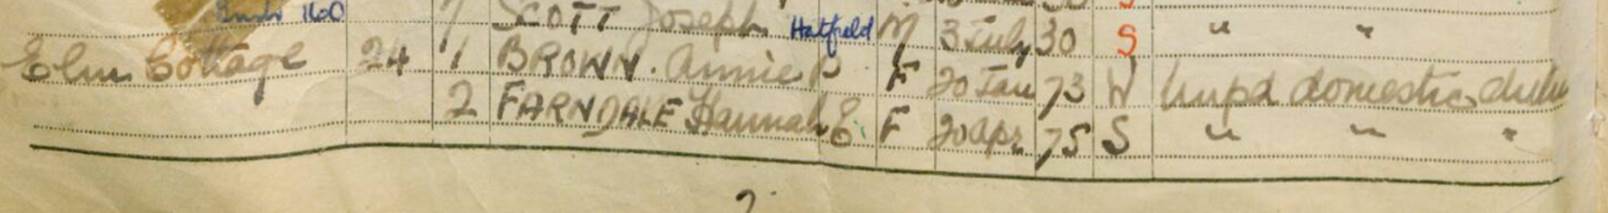 160
7 SCOTT Joseph Hatfield M 3 July 30 S " "
Elm Cottage 24 1 BROWN. Annie P F 20 Jan 73 W Unpd domestic duties
2 FARNDALE Hannah E F 20 Apr 75 S " " "